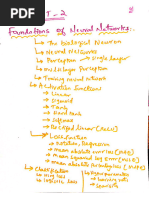 UNIT-2
Foundations of Neural Networks:
→ The Biological Neuron
→ Neural Networks
→ Perceptron → Single layer
→ multilayer Perceptron
→ Training neural networks
→ Activation functions
→ Linear
→ Sigmoid
→ Tanh
→ Hard tanh
→ Softmax
→ Rectified linear (ReLU)
→ Loss function
→ Notation, Regression
→ mean absolute error (MAE)
→ mean squared log error (MSLE)
→ mean absolute
→ Classification
→ Hyperparameters
→ learning rate
→ logistic loss